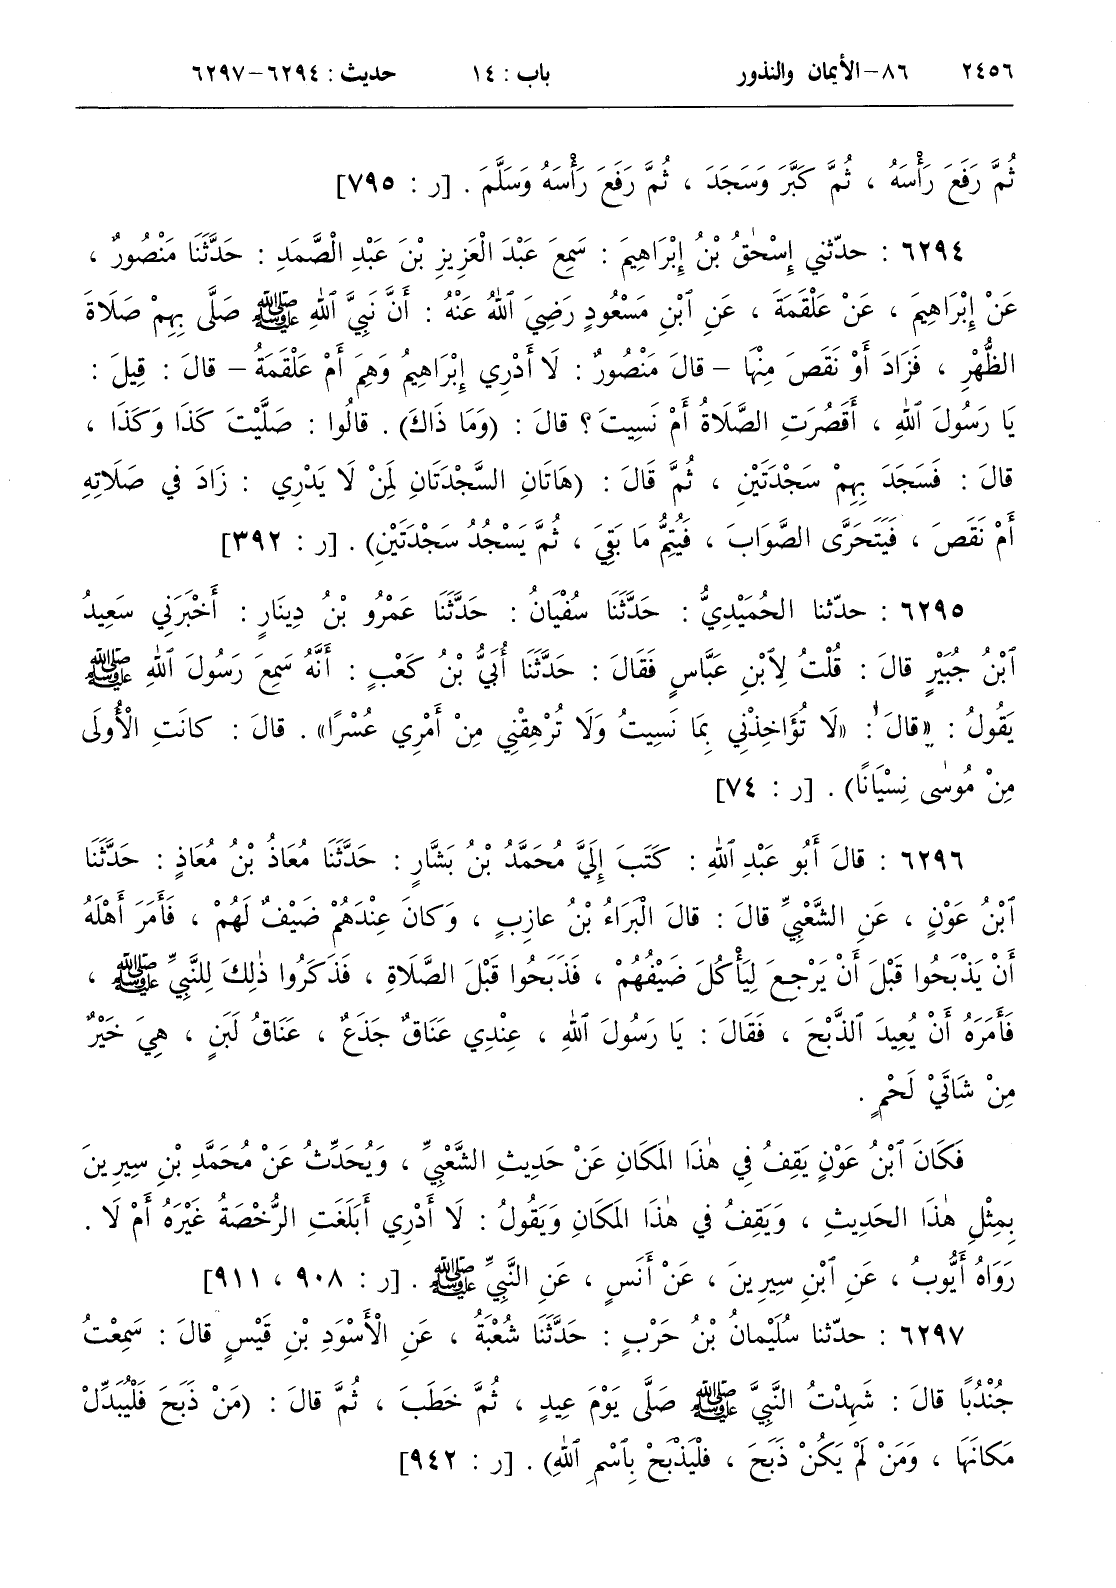 ٢٤٥٦ ٨٦-الأيمان والنذور باب : ١٤ حديث : ٦٢٩٤-٦٢٩٧
ثُمَّ رَفَعَ رَأْسَهُ ، ثُمَّ كَبَّرَ وَسَجَدَ ، ثُمَّ رَفَعَ رَأْسَهُ وَسَلَّمَ . [ر : ٧٩٥]
٦٢٩٤ : حدّثني إِسْحٰقُ بْنُ إِبْرَاهِيمَ : سَمِعَ عَبْدَ الْعَزِيزِ بْنَ عَبْدِ الْصَّمَدِ : حَدَّثَنَا مَنْصُورٌ ،
عَنْ إِبْرَاهِيمَ ، عَنْ عَلْقَمَةَ ، عَنِ ٱبْنِ مَسْعُودٍ رَضِيَ ٱللهُ عَنْهُ : أَنَّ نَبِيَّ ٱللهِ ﷺ صَلَّى بِهِمْ صَلَاةَ
الظُّهْرِ ، فَزَادَ أَوْ نَقَصَ مِنْهَا - قالَ مَنْصُورٌ : لَا أَدْرِي إِبْرَاهِيمُ وَهِمَ أَمْ عَلْقَمَةُ - قالَ : قِيلَ :
يَا رَسُولَ ٱللهِ ، أَقَصُرَتِ الصَّلَاةُ أَمْ نَسِيتَ ؟ قالَ : (وَمَا ذَاكَ) . قالُوا : صَلَّيْتَ كَذَا وَكَذَا ،
قالَ : فَسَجَدَ بِهِمْ سَجْدَتَيْنِ ، ثُمَّ قَالَ : (هَاتَانِ السَّجْدَتَانِ لِمَنْ لَا يَدْرِي : زَادَ في صَلَاتِهِ
أَمْ نَقَصَ ، فَيَتَحَرَّى الصَّوَابَ ، فَيُتِمُّ مَا بَقِيَ ، ثُمَّ يَسْجُدُ سَجْدَتَيْنِ) . [ر : ٣٩٢]
٦٢٩٥ : حدّثنا الحُمَيْدِيُّ : حَدَّثَنَا سُفْيَانُ : حَدَّثَنَا عَمْرُو بْنُ دِينَارٍ : أَخْبَرَنِي سَعِيدُ
ٱبْنُ جُبَيْرٍ قالَ : قُلْتُ لِٱبْنِ عَبَّاسٍ فَقَالَ : حَدَّثَنَا أُبَيُّ بْنُ كَعْبٍ : أَنَّهُ سَمِعَ رَسُولَ ٱللهِ ﷺ
يَقُولُ : «قالَ : «لَا تُؤَاخِذْنِي بِمَا نَسِيتُ وَلَا تُرْهِقْنِي مِنْ أَمْرِي عُسْرًا» . قالَ : كانَتِ الْأُولَى
مِنْ مُوسٰى نِسْيَانًا) . [ر : ٧٤]
٦٢٩٦ : قالَ أَبُو عَبْدِ ٱللهِ : كَتَبَ إِلَيَّ مُحَمَّدُ بْنُ بَشَّارٍ : حَدَّثَنَا مُعَاذُ بْنُ مُعَاذٍ : حَدَّثَنَا
ٱبْنُ عَوْنٍ ، عَنِ الشَّعْبِيِّ قالَ : قالَ الْبَرَاءُ بْنُ عازِبٍ ، وَكانَ عِنْدَهُمْ ضَيْفٌ لَهُمْ ، فَأَمَرَ أَهْلَهُ
أَنْ يَذْبَحُوا قَبْلَ أَنْ يَرْجِعَ لِيَأْكُلَ ضَيْفُهُمْ ، فَذَبَحُوا قَبْلَ الصَّلَاةِ ، فَذَكَرُوا ذٰلِكَ لِلنَّبِيِّ ﷺ ،
فَأَمَرَهُ أَنْ يُعِيدَ ٱلذَّبْحَ ، فَقَالَ : يَا رَسُولَ ٱللهِ ، عِنْدِي عَنَاقٌ جَذَعٌ ، عَنَاقُ لَبَنٍ ، هِيَ خَيْرٌ
مِنْ شَاتَيْ لَحْمٍ .
فَكَانَ ٱبْنُ عَوْنٍ يَقِفُ فِي هٰذَا المَكَانِ عَنْ حَدِيثِ الشَّعْبِيِّ ، وَيُحَدِّثُ عَنْ مُحَمَّدِ بْنِ سِيرِينَ
بِمِثْلِ هٰذَا الحَدِيثِ ، وَيَقِفُ في هٰذَا المَكَانِ وَيَقُولُ : لَا أَدْرِي أَبَلَغَتِ الرُّخْصَةُ غَيْرَهُ أَمْ لَا .
رَوَاهُ أَيُّوبُ ، عَنِ ٱبْنِ سِيرِينَ ، عَنْ أَنَسٍ ، عَنِ النَّبِيِّ ﷺ . [ر : ٩٠٨ ، ٩١١]
٦٢٩٧ : حدّثنا سُلَيْمانُ بْنُ حَرْبٍ : حَدَّثَنَا شُعْبَةُ ، عَنِ الْأَسْوَدِ بْنِ قَيْسٍ قالَ : سَمِعْتُ
جُنْدُبًا قالَ : شَهِدْتُ النَّبِيَّ ﷺ صَلَّى يَوْمَ عِيدٍ ، ثُمَّ خَطَبَ ، ثُمَّ قالَ : (مَنْ ذَبَحَ فَلْيُبَدِّلْ
مَكانَهَا ، وَمَنْ لَمْ يَكُنْ ذَبَحَ ، فَلْيَذْبَحْ بِٱسْمِ ٱللهِ) . [ر : ٩٤٢]